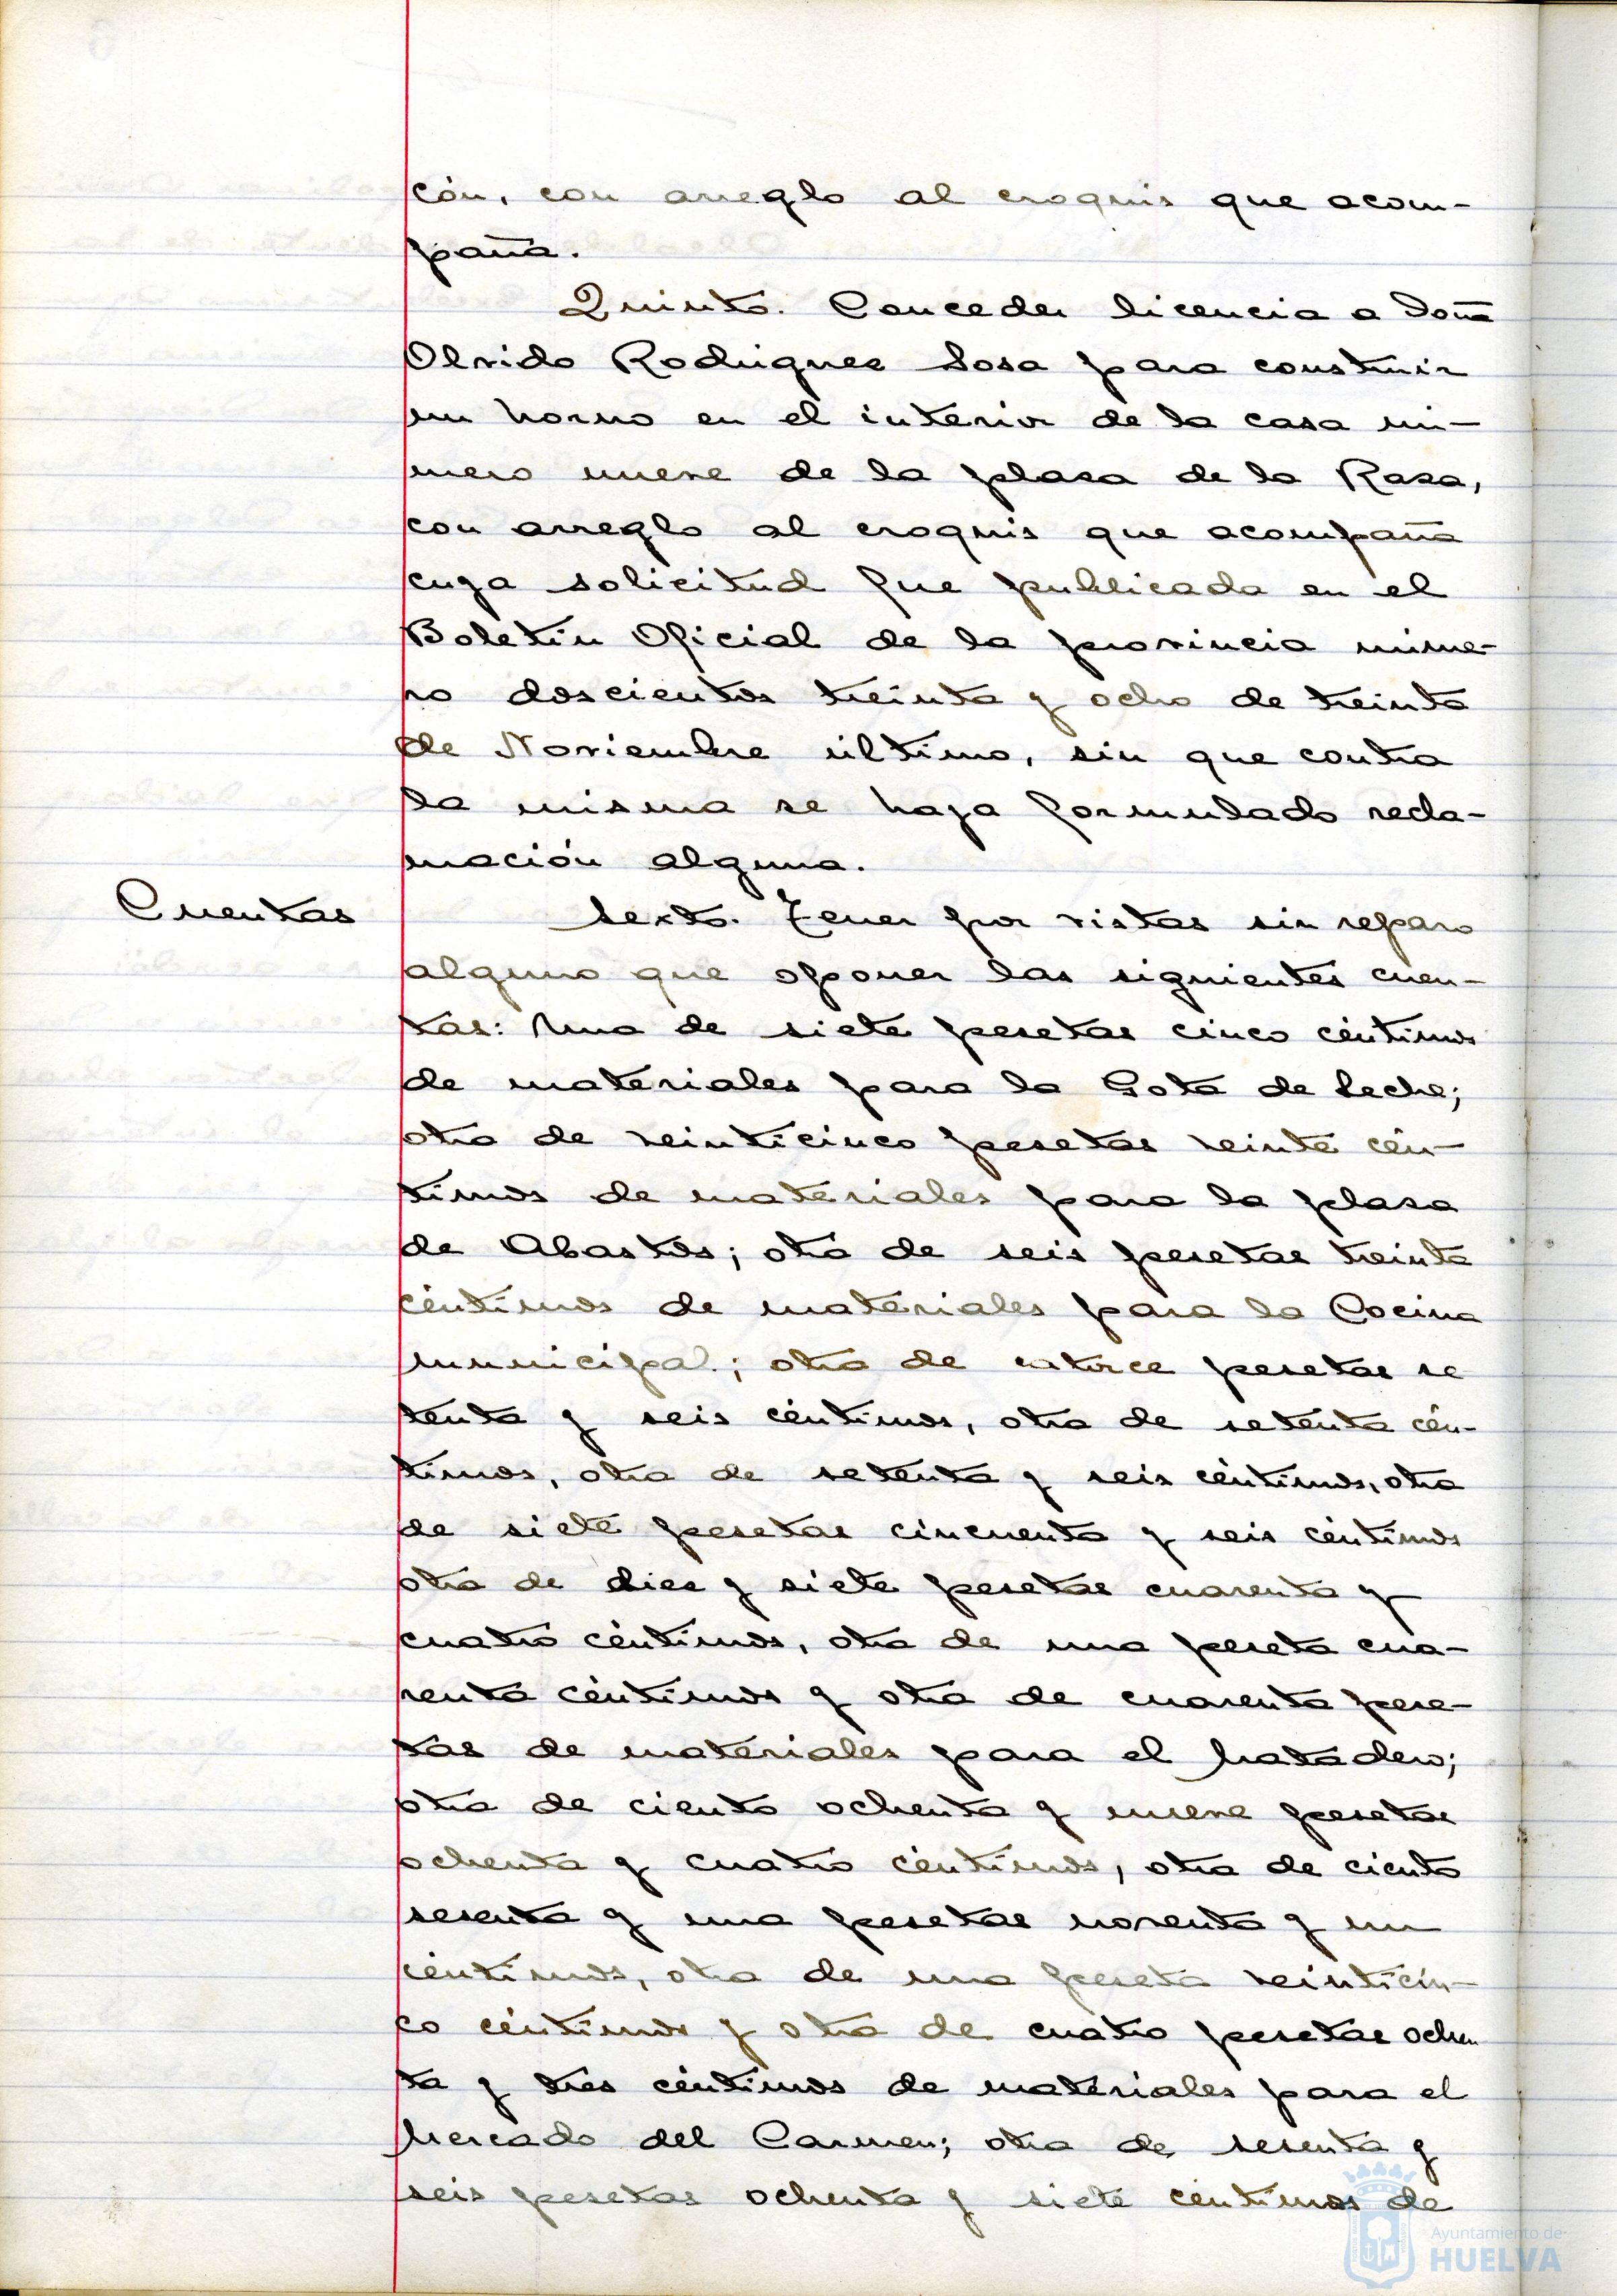 cón, con arreglo al croquis que acom-
paña.
Quinto. Conceder licencia a Doña
Olvido Rodriguez Sosa para construir
un horno en el interior de la casa nú-
mero nueve de la plaza de la Raza,
con arreglo al croquis que acompaña
cuya solicitud fue publicada en el
Boletín Oficial de la provincia núme-
ro doscientos treinta y ocho de treinta
de Noviembre último, sin que contra
la misma se haya formulado recla-
mación alguna.
Cuentas
Sexto. Tener por vistas sin reparo
alguno que oponer las siguientes cuen-
tas: Una de siete pesetas cinco céntimos
de materiales para la Gota de Leche;
otra de veinticinco pesetas veinte cén-
timos de materiales para la plaza
de Abastos; otra de seis pesetas treinta
céntimos de materiales para la Cocina
municipal; otra de catorce pesetas se
tenta y seis céntimos, otra de setenta cén-
timos, otra de setenta y seis céntimos, otra
de siete pesetas cincuenta y seis céntimos
otra de diez y siete pesetas cuarenta y
cuatro céntimos, otra de una peseta cua-
renta céntimos y otra de cuarenta pese-
tas de materiales para el Matadero;
otra de ciento ochenta y nueve pesetas
ochenta y cuatro céntimos, otra de ciento
sesenta y una pesetas noventa y un
céntimos, otra de una peseta veinticin-
co céntimos y otra de cuatro pesetas ochen
ta y tres céntimos de materiales para el
Mercado del Carmen; otra de sesenta y
seis pesetas ochenta y siete céntimos de
Ayuntamiento de
HUELVA